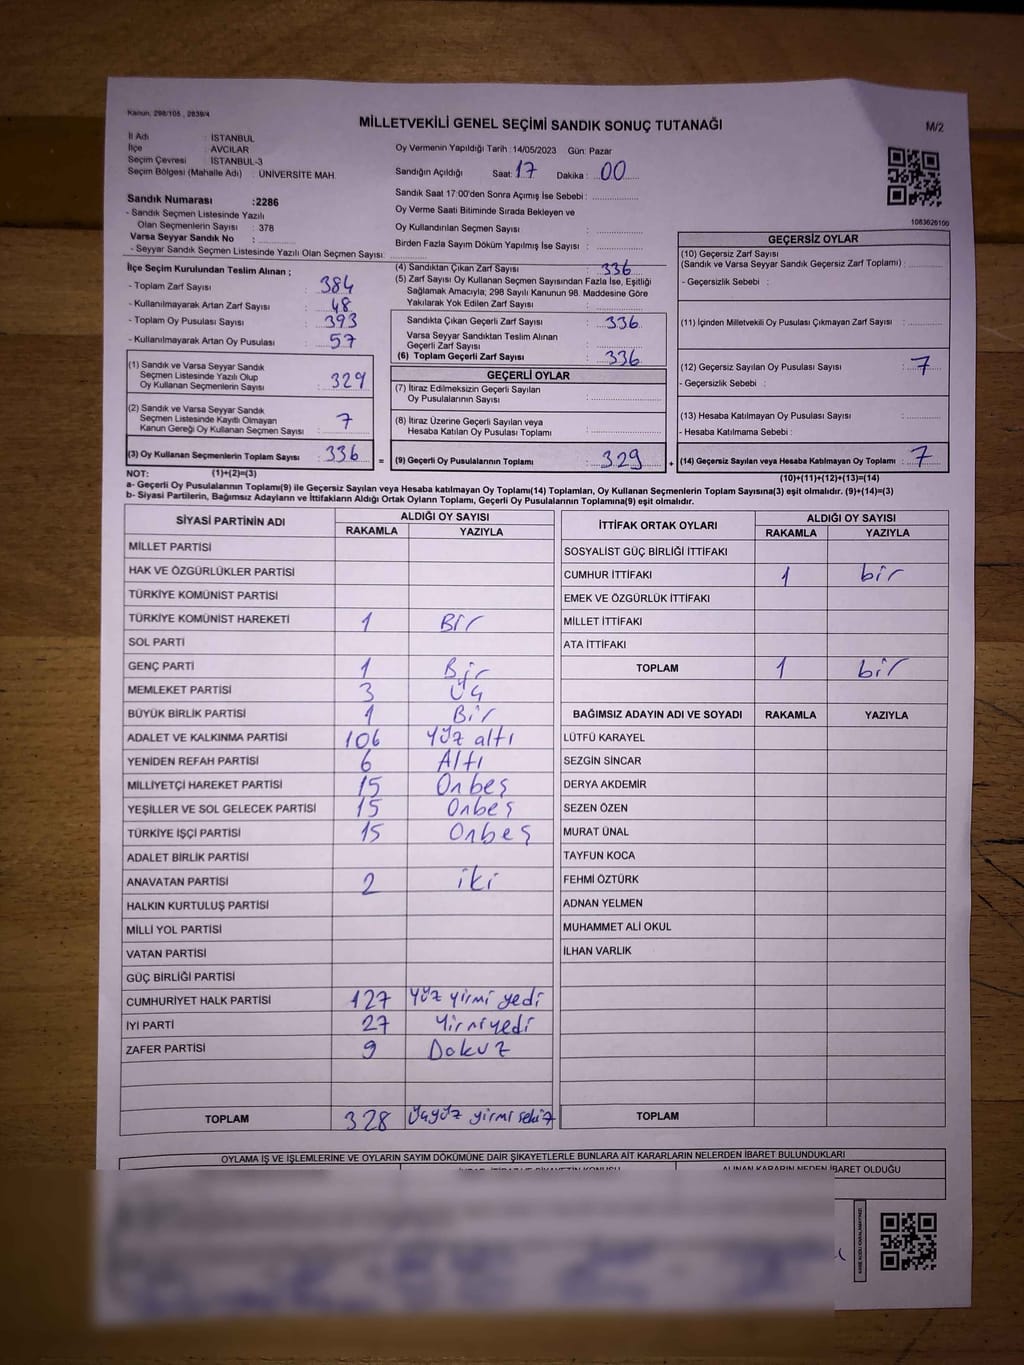 Kanun, 298/105 , 2839/4
MİLLETVEKİLİ GENEL SEÇİMİ SANDIK SONUÇ TUTANAĞI
M/2
İl Adı : İSTANBUL
İlçe : AVCILAR
Seçim Çevresi : İSTANBUL-3
Seçim Bölgesi (Mahalle Adı) : ÜNİVERSİTE MAH.
Oy Vermenin Yapıldığı Tarih : 14/05/2023 Gün: Pazar
Sandığın Açıldığı Saat: 17 Dakika : 00
Sandık Saat 17:00'den Sonra Açımış İse Sebebi :
Oy Verme Saati Bitiminde Sırada Bekleyen ve
Oy Kullandırılan Seçmen Sayısı :
Birden Fazla Sayım Döküm Yapılmış İse Sayısı :
1083626100
Sandık Numarası :2286
- Sandık Seçmen Listesinde Yazılı
Olan Seçmenlerin Sayısı : 378
Varsa Seyyar Sandık No :
- Seyyar Sandık Seçmen Listesinde Yazılı Olan Seçmen Sayısı:
İlçe Seçim Kurulundan Teslim Alınan ;
- Toplam Zarf Sayısı : 384
- Kullanılmayarak Artan Zarf Sayısı : 48
- Toplam Oy Pusulası Sayısı : 393
- Kullanılmayarak Artan Oy Pusulası : 57
(1) Sandık ve Varsa Seyyar Sandık
Seçmen Listesinde Yazılı Olup
Oy Kullanan Seçmenlerin Sayısı : 329
(2) Sandık ve Varsa Seyyar Sandık
Seçmen Listesinde Kayıtlı Olmayan
Kanun Gereği Oy Kullanan Seçmen Sayısı : 7
(3) Oy Kullanan Seçmenlerin Toplam Sayısı : 336
(4) Sandıktan Çıkan Zarf Sayısı : 336
(5) Zarf Sayısı Oy Kullanan Seçmen Sayısından Fazla İse, Eşitliği
Sağlamak Amacıyla; 298 Sayılı Kanunun 98. Maddesine Göre
Yakılarak Yok Edilen Zarf Sayısı :
Sandıkta Çıkan Geçerli Zarf Sayısı : 336
Varsa Seyyar Sandıktan Teslim Alınan
Geçerli Zarf Sayısı :
(6) Toplam Geçerli Zarf Sayısı : 336
GEÇERLİ OYLAR
(7) İtiraz Edilmeksizin Geçerli Sayılan
Oy Pusulalarının Sayısı :
(8) İtiraz Üzerine Geçerli Sayılan veya
Hesaba Katılan Oy Pusulası Toplamı :
= (9) Geçerli Oy Pusulalarının Toplamı : 329
GEÇERSİZ OYLAR
(10) Geçersiz Zarf Sayısı
(Sandık ve Varsa Seyyar Sandık Geçersiz Zarf Toplamı) :
- Geçersizlik Sebebi :
(11) İçinden Milletvekili Oy Pusulası Çıkmayan Zarf Sayısı :
(12) Geçersiz Sayılan Oy Pusulası Sayısı : 7
- Geçersizlik Sebebi :
(13) Hesaba Katılmayan Oy Pusulası Sayısı :
- Hesaba Katılmama Sebebi :
+ (14) Geçersiz Sayılan veya Hesaba Katılmayan Oy Toplamı : 7
NOT: (1)+(2)=(3)
(10)+(11)+(12)+(13)=(14)
a- Geçerli Oy Pusulalarının Toplamı(9) ile Geçersiz Sayılan veya Hesaba Katılmayan Oy Toplamı(14) Toplamları, Oy Kullanan Seçmenlerin Toplam Sayısına(3) eşit olmalıdır. (9)+(14)=(3)
b- Siyasi Partilerin, Bağımsız Adayların ve İttifakların Aldığı Ortak Oyların Toplamı, Geçerli Oy Pusulalarının Toplamına(9) eşit olmalıdır.
SİYASİ PARTİNİN ADI ALDIĞI OY SAYISI
RAKAMLA YAZIYLA
MİLLET PARTİSİ
HAK VE ÖZGÜRLÜKLER PARTİSİ
TÜRKİYE KOMÜNİST PARTİSİ
TÜRKİYE KOMÜNİST HAREKETİ 1 Bir
SOL PARTİ
GENÇ PARTİ 1 Bir
MEMLEKET PARTİSİ 3 Üç
BÜYÜK BİRLİK PARTİSİ 1 Bir
ADALET VE KALKINMA PARTİSİ 106 Yüz altı
YENİDEN REFAH PARTİSİ 6 Altı
MİLLİYETÇİ HAREKET PARTİSİ 15 Onbeş
YEŞİLLER VE SOL GELECEK PARTİSİ 15 Onbeş
TÜRKİYE İŞÇİ PARTİSİ 15 Onbeş
ADALET BİRLİK PARTİSİ
ANAVATAN PARTİSİ 2 iki
HALKIN KURTULUŞ PARTİSİ
MİLLİ YOL PARTİSİ
VATAN PARTİSİ
GÜÇ BİRLİĞİ PARTİSİ
CUMHURİYET HALK PARTİSİ 127 Yüz yirmi yedi
İYİ PARTİ 27 Yirmiyedi
ZAFER PARTİSİ 9 Dokuz
TOPLAM 328 Üçyüz yirmi sekiz
İTTİFAK ORTAK OYLARI ALDIĞI OY SAYISI
RAKAMLA YAZIYLA
SOSYALİST GÜÇ BİRLİĞİ İTTİFAKI
CUMHUR İTTİFAKI 1 bir
EMEK VE ÖZGÜRLÜK İTTİFAKI
MİLLET İTTİFAKI
ATA İTTİFAKI
TOPLAM 1 bir
BAĞIMSIZ ADAYIN ADI VE SOYADI RAKAMLA YAZIYLA
LÜTFÜ KARAYEL
SEZGİN SİNCAR
DERYA AKDEMİR
SEZEN ÖZEN
MURAT ÜNAL
TAYFUN KOCA
FEHMİ ÖZTÜRK
ADNAN YELMEN
MUHAMMET ALİ OKUL
İLHAN VARLIK
TOPLAM
OYLAMA İŞ VE İŞLEMLERİNE VE OYLARIN SAYIM DÖKÜMÜNE DAİR ŞİKAYETLERLE BUNLARA AİT KARARLARIN NELERDEN İBARET BULUNDUKLARI
ALINAN KARARIN NEDEN İBARET OLDUĞU